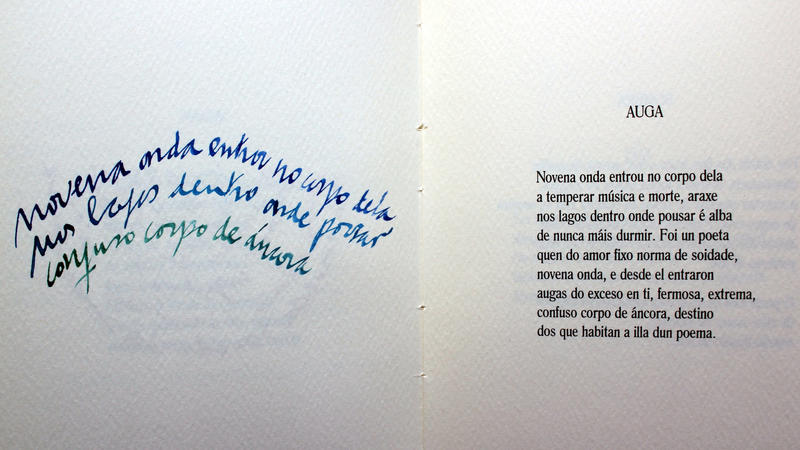 Novena onda entrou no corpo dela
nos lagos dentro onde pousar
confuso corpo de áncora
AUGA
Novena onda entrou no corpo dela
a temperar música e morte, araxe
nos lagos dentro onde pousar é alba
de nunca máis durmir. Foi un poeta
quen do amor fixo norma de soidade,
novena onda, e desde el entraron
augas do exceso en ti, fermosa, extrema,
confuso corpo de áncora, destino
dos que habitan a illa dun poema.